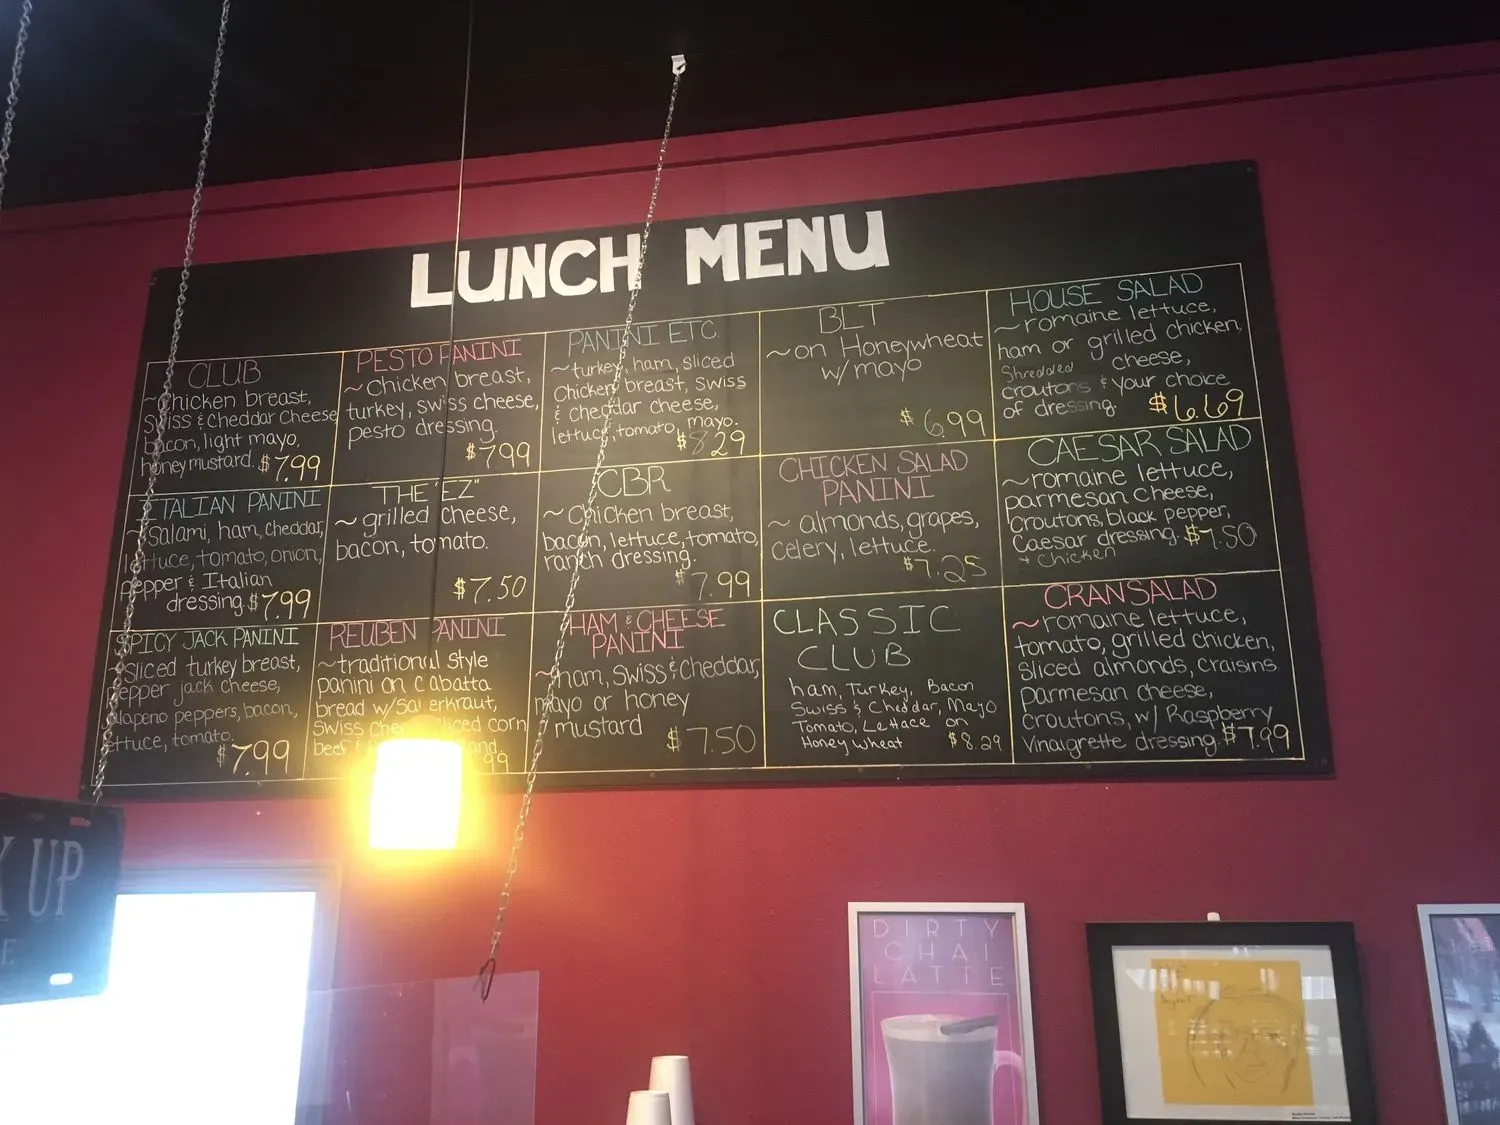 LUNCH MENU
CLUB
~Chicken breast,
Swiss & Cheddar Cheese
bacon, light mayo,
honey mustard. $7.99
PESTO PANINI
~Chicken breast,
turkey, swiss cheese,
pesto dressing.
$7.99
PANINI ETC.
~turkey, ham, sliced
Chicken breast, Swiss
& cheddar cheese,
lettuce, tomato, mayo.
$8.29
BLT
~on Honeywheat
w/ mayo
$6.99
HOUSE SALAD
~romaine lettuce,
ham or grilled chicken,
Shredded cheese,
croutons & your choice
of dressing. $6.69
ITALIAN PANINI
~Salami, ham, cheddar,
lettuce, tomato, onion,
pepper & Italian
dressing. $7.99
THE "EZ"
~grilled cheese,
bacon, tomato.
$7.50
CBR
~Chicken breast,
bacon, lettuce, tomato,
ranch dressing.
$7.99
CHICKEN SALAD
PANINI
~almonds, grapes,
celery, lettuce.
$7.25
CAESAR SALAD
~romaine lettuce,
parmesan cheese,
croutons, black pepper,
Caesar dressing. $7.50
+ Chicken
SPICY JACK PANINI
~Sliced turkey breast,
pepper jack cheese,
jalapeno peppers, bacon,
lettuce, tomato.
$7.99
REUBEN PANINI
~traditional style
panini on Ciabatta
bread w/Sauerkraut,
Swiss sliced corn
beef &
99
HAM & CHEESE
PANINI
~ham, Swiss & Cheddar,
mayo or honey
mustard
$7.50
CLASSIC
CLUB
ham, Turkey, Bacon
Swiss & Cheddar, Mayo
Tomato, Lettace on
Honey wheat $8.29
CRANSALAD
~romaine lettuce,
tomato, grilled chicken,
Sliced almonds, craisins
parmesan cheese,
croutons, w/ Raspberry
Vinaigrette dressing. $7.99
K UP
DIRTY
CHAI
LATTE